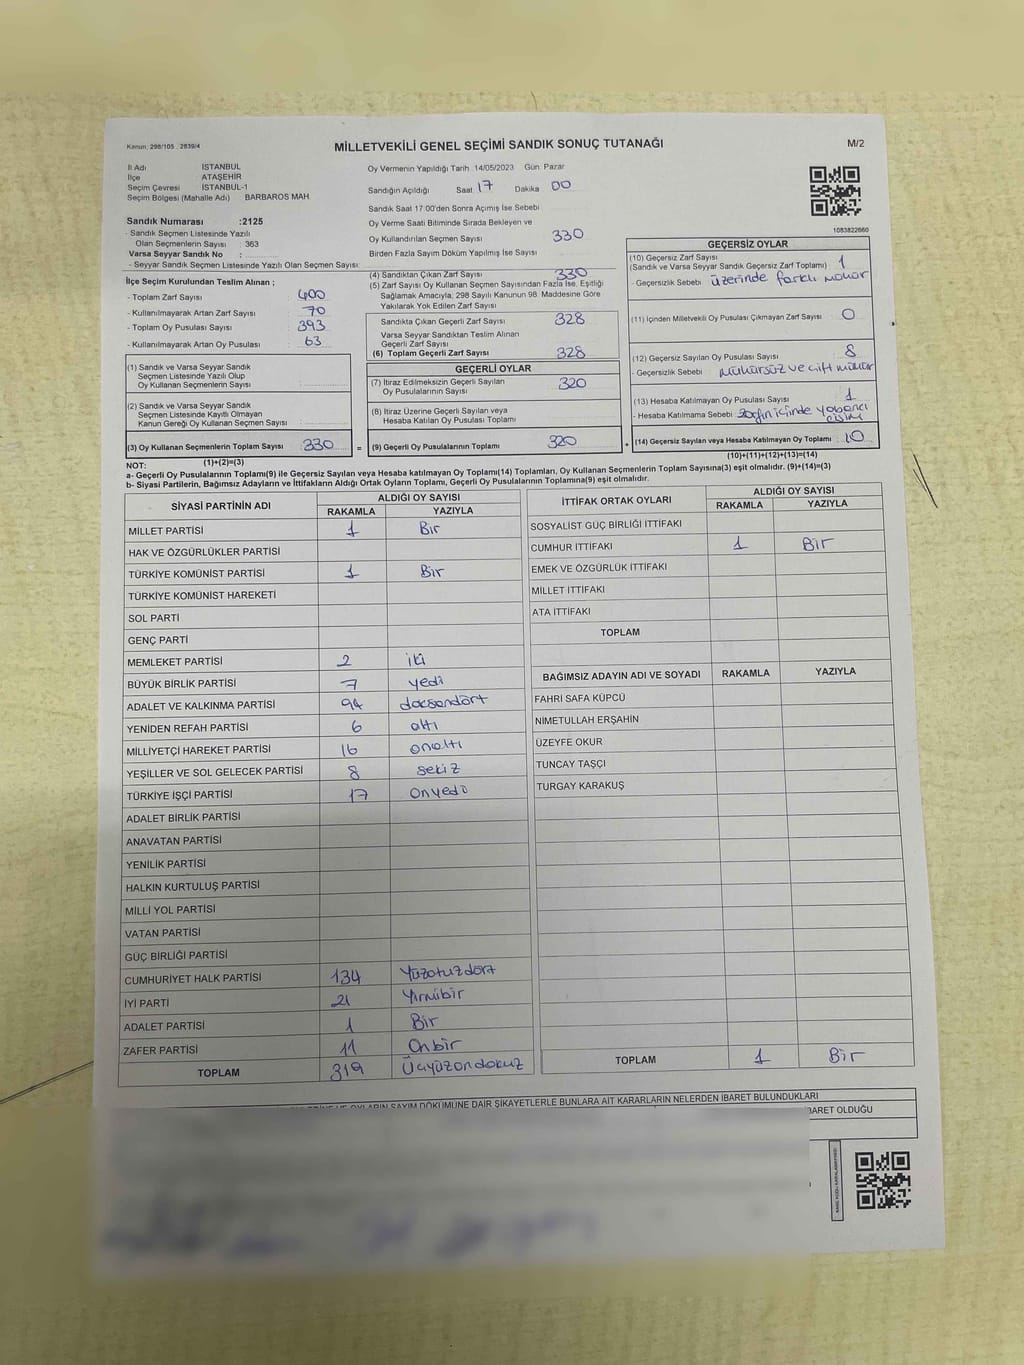 Kanun: 298/105 , 2839/4
MİLLETVEKİLİ GENEL SEÇİMİ SANDIK SONUÇ TUTANAĞI
M/2
İl Adı İSTANBUL
İlçe ATAŞEHİR
Seçim Çevresi İSTANBUL-1
Seçim Bölgesi (Mahalle Adı) BARBAROS MAH.
Sandık Numarası :2125
- Sandık Seçmen Listesinde Yazılı
Olan Seçmenlerin Sayısı : 363
Varsa Seyyar Sandık No :
- Seyyar Sandık Seçmen Listesinde Yazılı Olan Seçmen Sayısı:
Oy Vermenin Yapıldığı Tarih 14/05/2023 Gün: Pazar
Sandığın Açıldığı Saat 17 Dakika 00
Sandık Saat 17:00'den Sonra Açımış İse Sebebi
Oy Verme Saati Bitiminde Sırada Bekleyen ve
Oy Kullandırılan Seçmen Sayısı 330
Birden Fazla Sayım Döküm Yapılmış İse Sayısı
1083822660
İlçe Seçim Kurulundan Teslim Alınan ;
- Toplam Zarf Sayısı : 400
- Kullanılmayarak Artan Zarf Sayısı : 70
- Toplam Oy Pusulası Sayısı : 393
- Kullanılmayarak Artan Oy Pusulası : 63
(1) Sandık ve Varsa Seyyar Sandık
Seçmen Listesinde Yazılı Olup
Oy Kullanan Seçmenlerin Sayısı :
(2) Sandık ve Varsa Seyyar Sandık
Seçmen Listesinde Kayıtlı Olmayan
Kanun Gereği Oy Kullanan Seçmen Sayısı :
(3) Oy Kullanan Seçmenlerin Toplam Sayısı 330 =
(1)+(2)=(3)
(4) Sandıktan Çıkan Zarf Sayısı 330
(5) Zarf Sayısı Oy Kullanan Seçmen Sayısından Fazla İse, Eşitliği
Sağlamak Amacıyla, 298 Sayılı Kanunun 98. Maddesine Göre
Yakılarak Yok Edilen Zarf Sayısı
Sandıkta Çıkan Geçerli Zarf Sayısı 328
Varsa Seyyar Sandıktan Teslim Alınan
Geçerli Zarf Sayısı
(6) Toplam Geçerli Zarf Sayısı 328
GEÇERLİ OYLAR
(7) İtiraz Edilmeksizin Geçerli Sayılan
Oy Pusulalarının Sayısı 320
(8) İtiraz Üzerine Geçerli Sayılan veya
Hesaba Katılan Oy Pusulası Toplamı
(9) Geçerli Oy Pusulalarının Toplamı 320 +
GEÇERSİZ OYLAR
(10) Geçersiz Zarf Sayısı
(Sandık ve Varsa Seyyar Sandık Geçersiz Zarf Toplamı) 1
- Geçersizlik Sebebi üzerinde farklı mühür
(11) İçinden Milletvekili Oy Pusulası Çıkmayan Zarf Sayısı 0
(12) Geçersiz Sayılan Oy Pusulası Sayısı 8
- Geçersizlik Sebebi mühürsüz ve çift mühür
(13) Hesaba Katılmayan Oy Pusulası Sayısı 1
- Hesaba Katılmama Sebebi zarfın içinde yabancı cisim
(14) Geçersiz Sayılan veya Hesaba Katılmayan Oy Toplamı 10
(10)+(11)+(12)+(13)=(14)
NOT:
a- Geçerli Oy Pusulalarının Toplamı(9) ile Geçersiz Sayılan veya Hesaba katılmayan Oy Toplamı(14) Toplamları, Oy Kullanan Seçmenlerin Toplam Sayısına(3) eşit olmalıdır. (9)+(14)=(3)
b- Siyasi Partilerin, Bağımsız Adayların ve İttifakların Aldığı Oyların Toplamı, Geçerli Oy Pusulalarının Toplamına(9) eşit olmalıdır.
SİYASİ PARTİNİN ADI ALDIĞI OY SAYISI
RAKAMLA YAZIYLA
MİLLET PARTİSİ 1 Bir
HAK VE ÖZGÜRLÜKLER PARTİSİ
TÜRKİYE KOMÜNİST PARTİSİ 1 Bir
TÜRKİYE KOMÜNİST HAREKETİ
SOL PARTİ
GENÇ PARTİ
MEMLEKET PARTİSİ 2 iki
BÜYÜK BİRLİK PARTİSİ 7 yedi
ADALET VE KALKINMA PARTİSİ 94 doksandört
YENİDEN REFAH PARTİSİ 6 altı
MİLLİYETÇİ HAREKET PARTİSİ 16 onaltı
YEŞİLLER VE SOL GELECEK PARTİSİ 8 sekiz
TÜRKİYE İŞÇİ PARTİSİ 17 onyedi
ADALET BİRLİK PARTİSİ
ANAVATAN PARTİSİ
YENİLİK PARTİSİ
HALKIN KURTULUŞ PARTİSİ
MİLLİ YOL PARTİSİ
VATAN PARTİSİ
GÜÇ BİRLİĞİ PARTİSİ
CUMHURİYET HALK PARTİSİ 134 Yüzotuzdört
İYİ PARTİ 21 Yirmibir
ADALET PARTİSİ 1 Bir
ZAFER PARTİSİ 11 Onbir
TOPLAM 319 Üçyüzondokuz
İTTİFAK ORTAK OYLARI ALDIĞI OY SAYISI
RAKAMLA YAZIYLA
SOSYALİST GÜÇ BİRLİĞİ İTTİFAKI
CUMHUR İTTİFAKI 1 Bir
EMEK VE ÖZGÜRLÜK İTTİFAKI
MİLLET İTTİFAKI
ATA İTTİFAKI
TOPLAM
BAĞIMSIZ ADAYIN ADI VE SOYADI RAKAMLA YAZIYLA
FAHRİ SAFA KÜPCÜ
NİMETULLAH ERŞAHİN
ÜZEYFE OKUR
TUNCAY TAŞÇI
TURGAY KARAKUŞ
TOPLAM 1 Bir
OYLARIN SAYIM DÖKÜMÜNE DAİR ŞİKAYETLERLE BUNLARA AİT KARARLARIN NELERDEN İBARET BULUNDUKLARI
BARET OLDUĞU